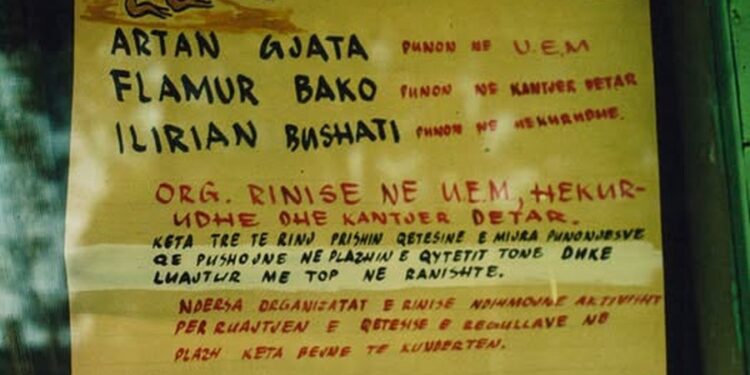 ARTAN GJATA PUNON NE U.E.M
FLAMUR BAKO PUNON NE KANTJER DETAR
ILIRIAN BUSHATI PUNON NE HEKURUDHE.
ORG. RINISE NE U.E.M, HEKUR-
UDHE DHE KANTJER DETAR.
KETA TRE TE RINJ PRISHIN QETESINE E MIJRA PUNONJESVE
QE PUSHOJNE NE PLAZHIN E QYTETIT TONE DUKE
LUAJTUR ME TOP NE RANISHTE.
NDERSA ORGANIZATAT E RINISE NDIHMOJNE AKTIVISHT
PER RUAJTJEN E QETESISE E REGULLAVE NE
PLAZH KETA BEJNE TE KUNDERTEN.